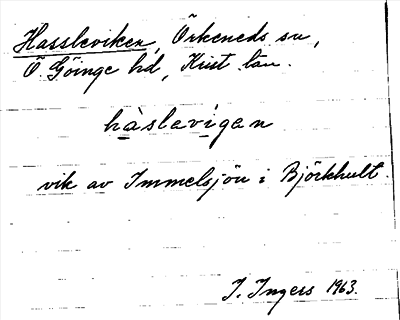 Hassleviken, Örkeneds sn,
Ö Göinge hd, Krist län.
hàslevigen
vik av Immelsjön i Björkhult.
I. Ingers 1963.